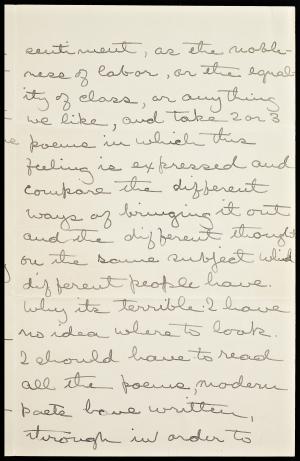 sentiment, as the noble-
ness of labor, or the equal-
ity of class, or anything
we like, and take 2 or 3
poems in which this
feeling is expressed and
compare the different
ways of bringing it out
and the different thought
on the same subject which
different people have.
Why its terrible. I have
no idea where to look.
I should have to read
all the poems, modern
poets have written,
through in order to